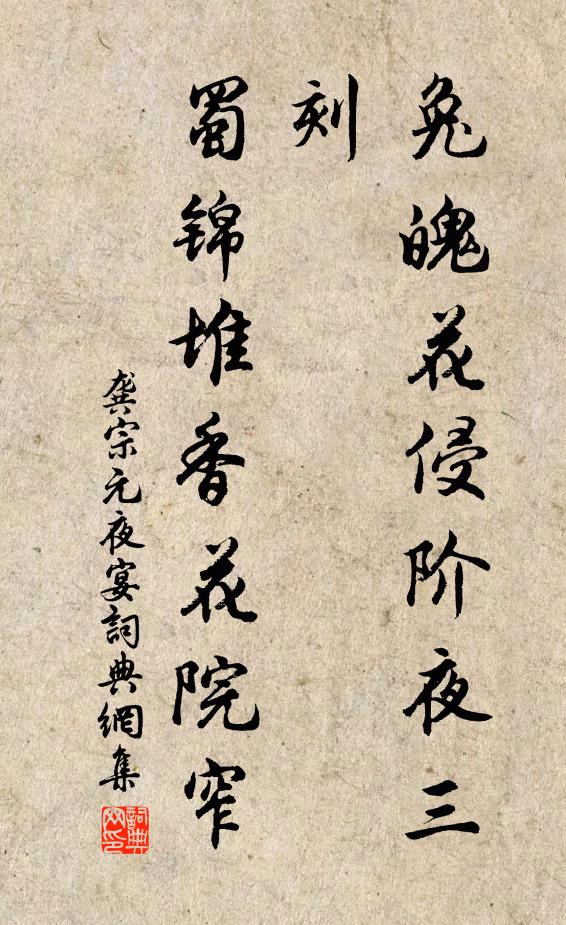 兔魄花侵阶夜三
刻
蜀锦堆香花院窄
龚宗元夜宴詞典網集
詞典网印